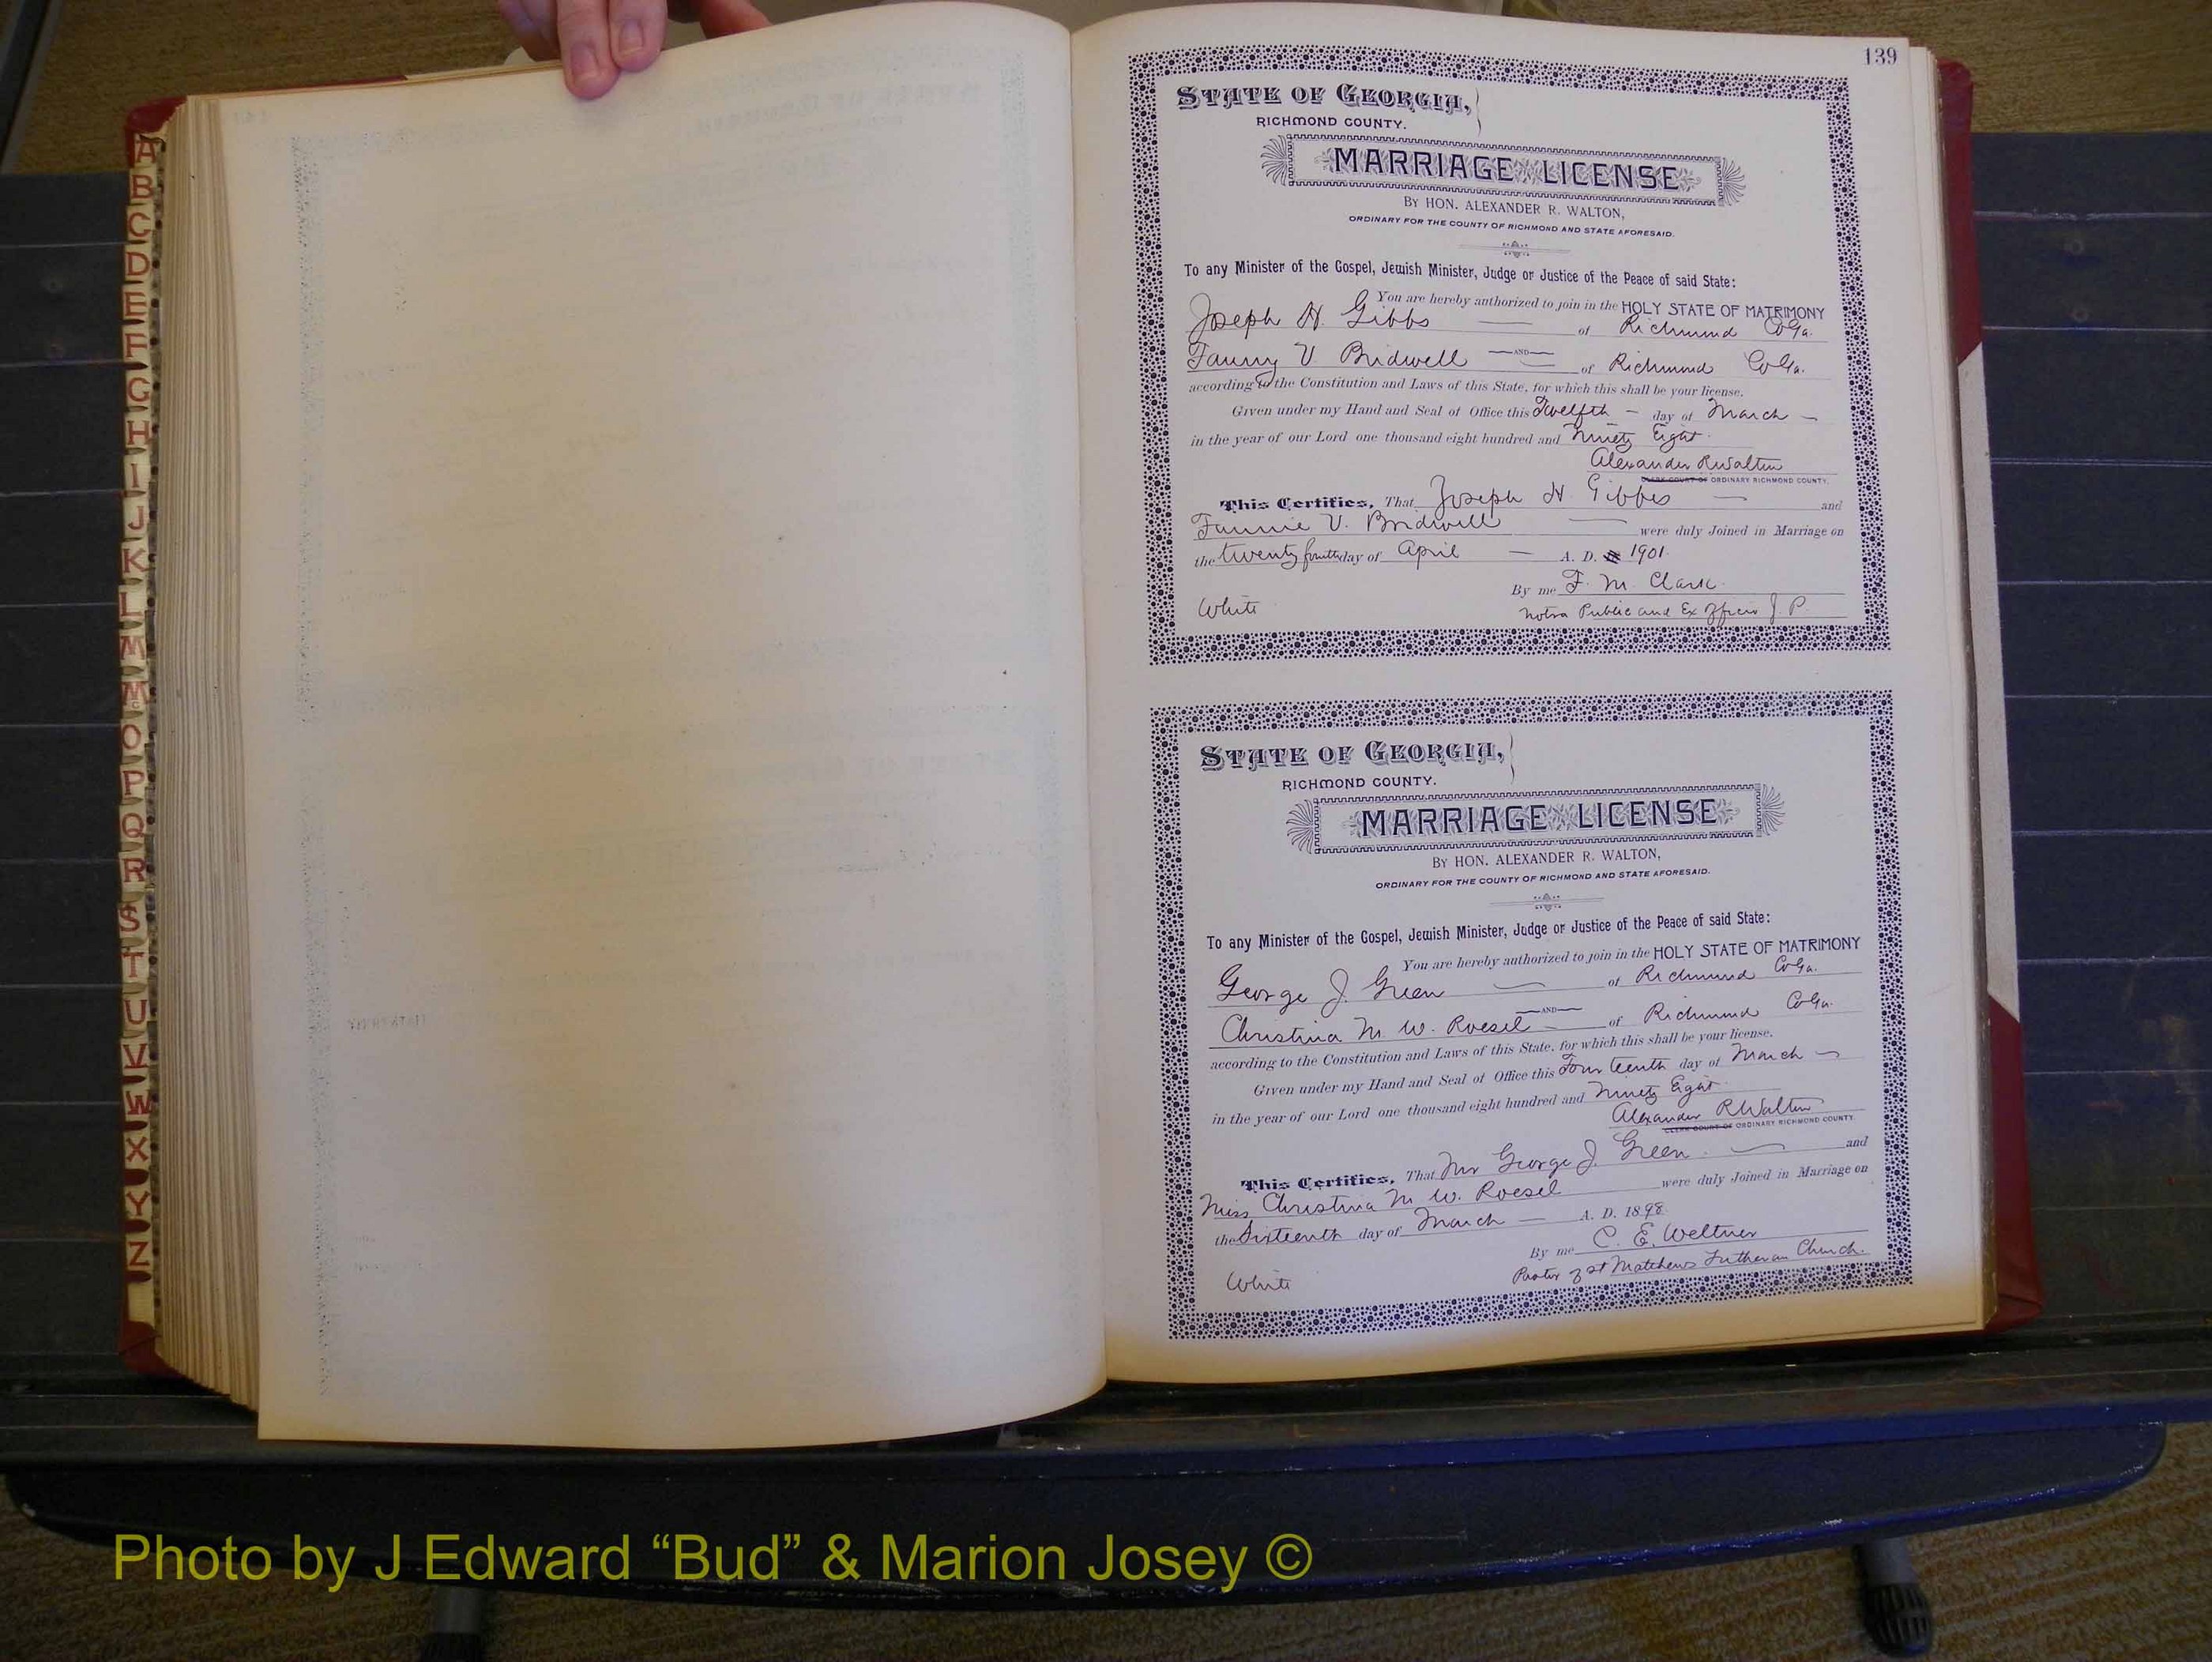 A
B
C
D
E
F
G
H
I
J
K
L
M
Mc
O
P
Q
R
S
T
U
V
W
X
Y
Z
139
STATE OF GEORGIA,
RICHMOND COUNTY.
MARRIAGE LICENSE
BY HON. ALEXANDER R. WALTON,
ORDINARY FOR THE COUNTY OF RICHMOND AND STATE AFORESAID.
To any Minister of the Gospel, Jewish Minister, Judge or Justice of the Peace of said State:
You are hereby authorized to join in the HOLY STATE OF MATRIMONY
Joseph H. Gibbs of Richmond Co Ga.
AND
Fanny V Bridwell of Richmond Co Ga.
according to the Constitution and Laws of this State, for which this shall be your license.
Given under my Hand and Seal of Office this Twelfth day of March
in the year of our Lord one thousand eight hundred and Ninety Eight.
Alexander R Walton
CLERK COURT OF ORDINARY RICHMOND COUNTY.
This Certifies, That Joseph H. Gibbes and
Fannie V. Bridwell were duly Joined in Marriage on
the twenty fourth day of April A. D. 1901
By me F. M. Clark.
White Notra Public and Ex Officio J. P.
STATE OF GEORGIA,
RICHMOND COUNTY.
MARRIAGE LICENSE
BY HON. ALEXANDER R. WALTON,
ORDINARY FOR THE COUNTY OF RICHMOND AND STATE AFORESAID.
To any Minister of the Gospel, Jewish Minister, Judge or Justice of the Peace of said State:
You are hereby authorized to join in the HOLY STATE OF MATRIMONY
George J. Green of Richmond Co Ga.
AND
Christina M W. Roesel of Richmond Co Ga.
according to the Constitution and Laws of this State, for which this shall be your license.
Given under my Hand and Seal of Office this Fourteenth day of March
in the year of our Lord one thousand eight hundred and Ninety Eight.
Alexander R Walton
CLERK COURT OF ORDINARY RICHMOND COUNTY.
This Certifies, That Mr George J. Green. and
Miss Christina M W. Roesel were duly Joined in Marriage on
the Sixteenth day of March A. D. 1898
By me C. E. Weltner
White Pastor of St Matthews Lutheran Church.
Photo by J Edward “Bud” & Marion Josey ©